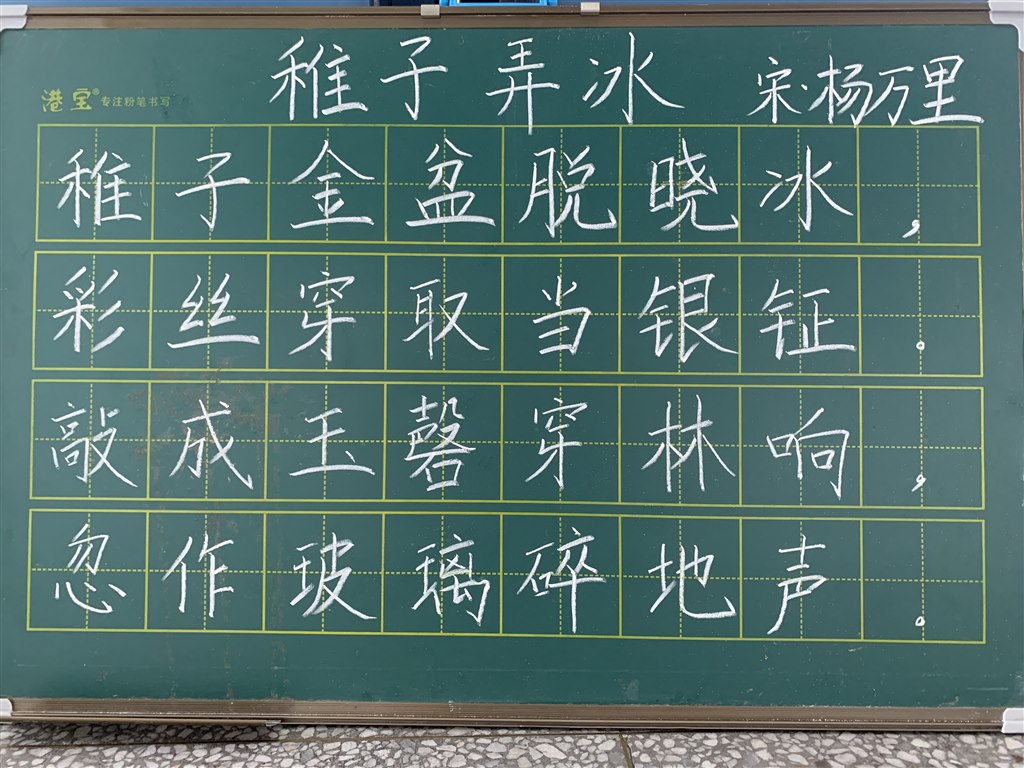 稚子弄冰 宋·杨万里
港宝® 专注粉笔书写
稚子金盆脱晓冰，
彩丝穿取当银钲。
敲成玉磬穿林响，
忽作玻璃碎地声。